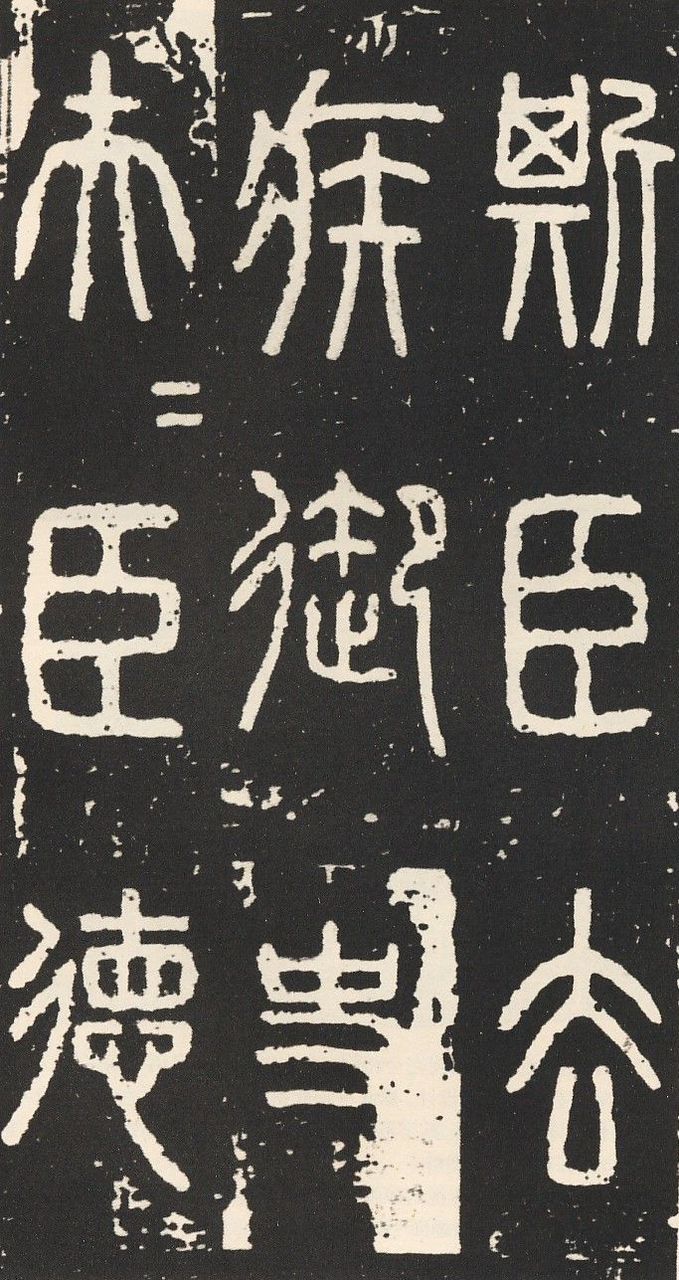 斯臣去
疾御史
夫=臣德